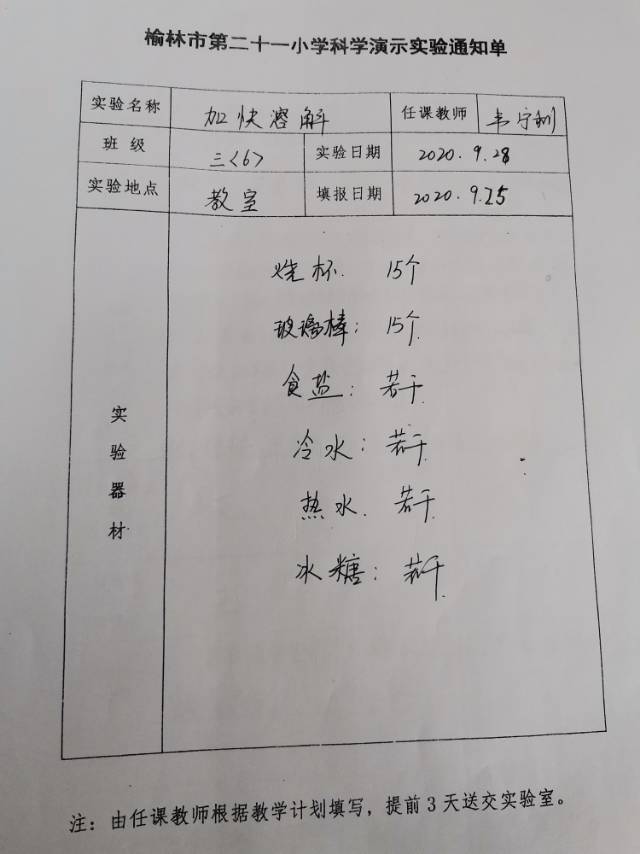 榆林市第二十一小学科学演示实验通知单
实验名称 加快溶解 任课教师
班级 三<6> 实验日期 2020.9.28
实验地点 教室 填报日期 2020.9.25
实验器材
烧杯. 15个
玻璃棒: 15个.
食盐: 若干.
冷水: 若干.
热水. 若干.
冰糖: 若干.
注:由任课教师根据教学计划填写,提前3天送交实验室。